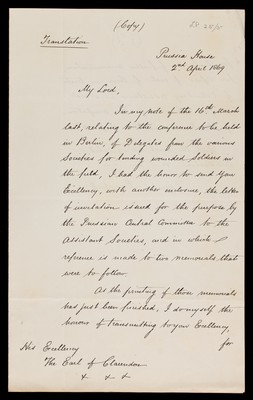 (Copy)
Translation
Prussia House
2nd April 1869
My Lord,
In my note of the 16th March
last, relating to the conference to be held
in Berlin, of Delegates from the various
Societies for tending wounded Soldiers in
the field, I had the honor to send your
Excellency, with another inclosure, the letter
of invitation issued for the purpose by
the Prussian Central Committee to the
Assistant Societies, and in which
reference is made to two memorials that
were to follow.
As the printing of those memorials
has just been finished, I do myself the
honour of transmitting to your Excellency,
for
His Excellency
The Earl of Clarendon
x x x